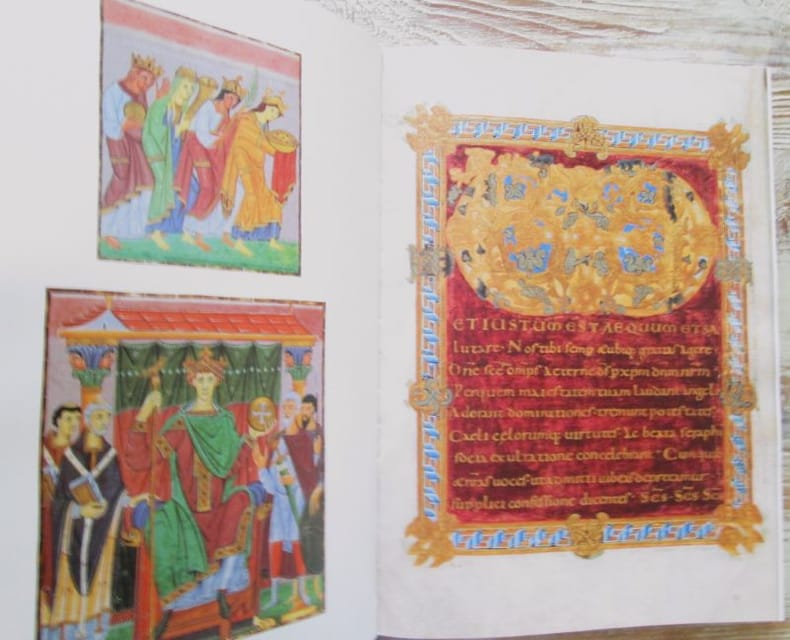 ETIUSTUMESTAEQUUM ETSA
lutare· Nos tibi semp &ubiq; gratias agere
Dne scē omps aeterne ds p xpm dnm nrm
Per quem maiestatem tuam laudant angeli
Adorant dominationes· tremunt potestates·
Caeli celorumq; uirtutes· Ac beata seraph
socia exultatione concelebrant· Cum quib
&nras uoces· ut admitti iubeas deprecamur
supplici confessione dicentes· Scs· Scs Scs